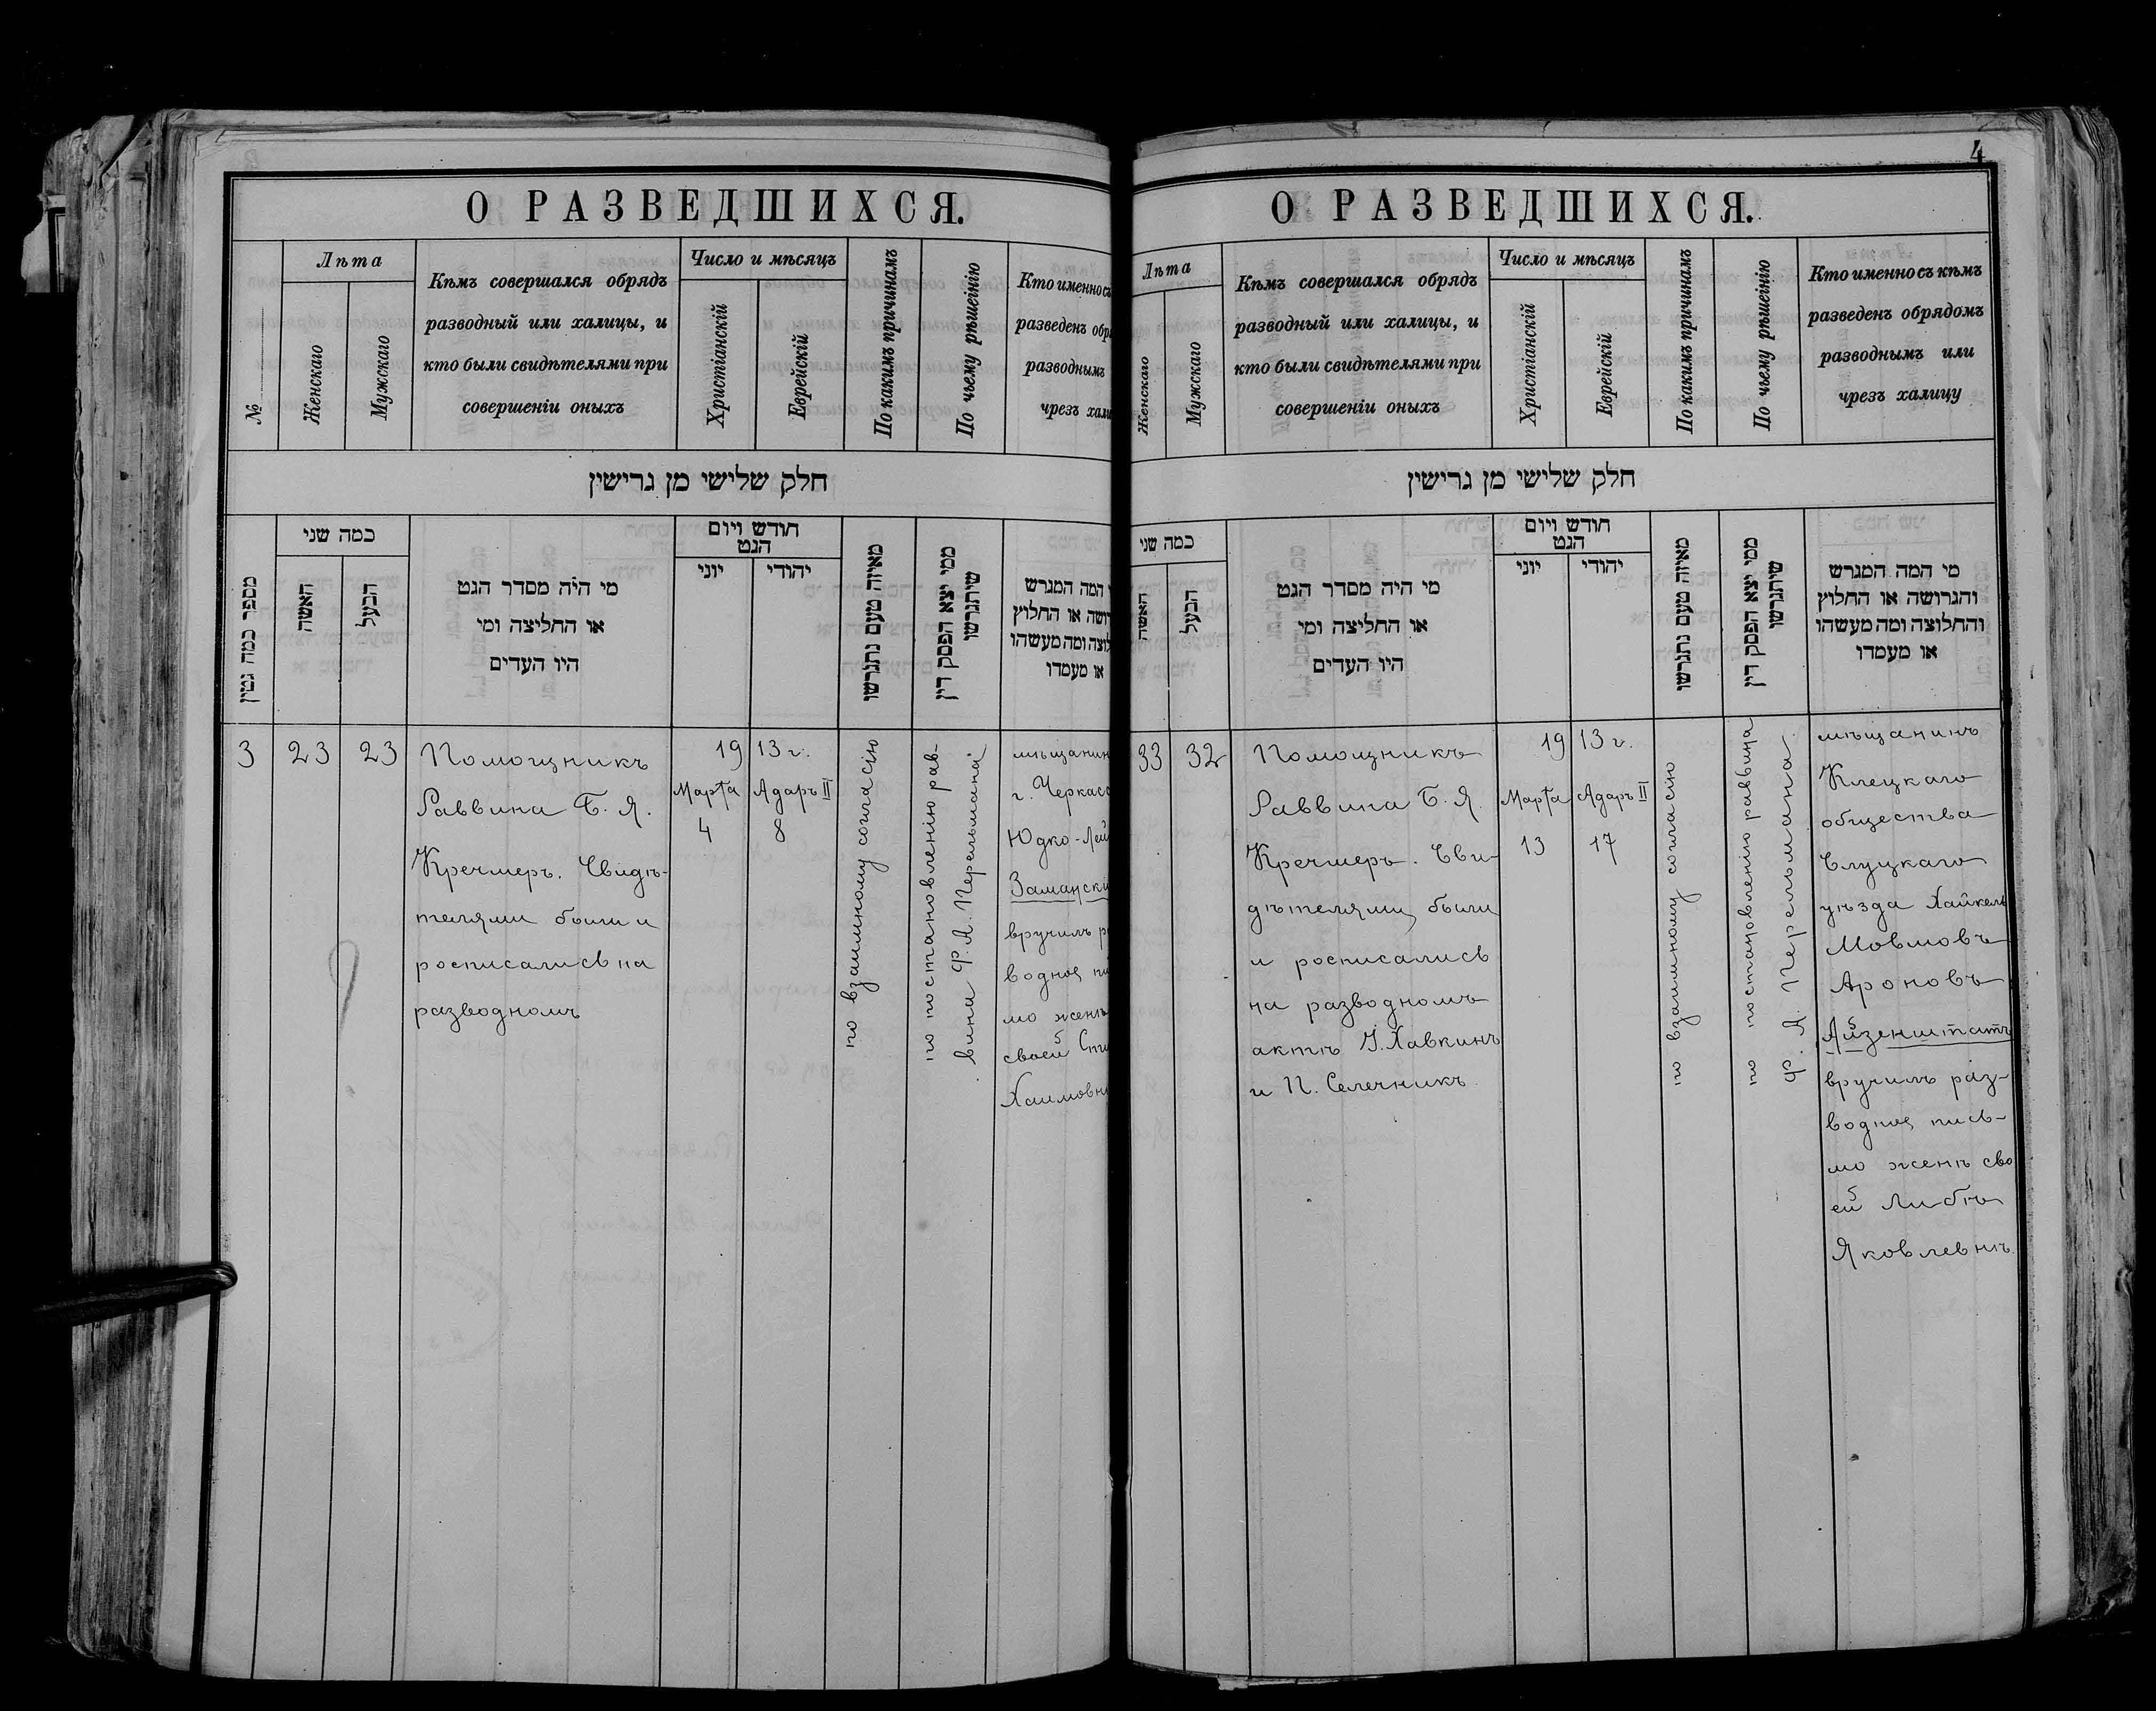 О РАЗВЕДШИХСЯ.
№
Лѣта
Женскаго
Мужскаго
Кѣмъ совершался обрядъ
разводный или халицы, и
кто были свидѣтелями при
совершеніи оныхъ
Число и мѣсяцъ
Христіанскій
Еврейскій
По какимъ причинамъ
По чьему рѣшенію
Кто именно съ
разведенъ обр
разводнымъ
чрезъ хали
חלק שלישי מן גרישין
מספר כמה גטין
כמה שני
האשה
הבעל
מי היה מסדר הגט
או החליצה ומי
היו העדים
חודש ויום
הגט
יוני
יהודי
מאיזה טעם נתגרשו
ממי יצא הפסק דין
שיתגרשו
המה המגרש
ושה או החלוץ
לוצה ומה מעשהו
או מעמדו
3
23
23
Помощникъ
Раввина Б. Я.
Кречмеръ. Свидѣ-
телями были и
росписались на
разводномъ
19 13 г.
Марта
4
Адаръ II
8
по взаимному согласію
по постановленію рав-
вина Ф. А. Перельмана
мѣщанин
г. Черкасс
Юдко-Лей
Заманскі
вручилъ р
водное пи
мо женѣ
своей
Хаимовн
4
О РАЗВЕДШИХСЯ.
Лѣта
Женскаго
Мужскаго
Кѣмъ совершался обрядъ
разводный или халицы, и
кто были свидѣтелями при
совершеніи оныхъ
Число и мѣсяцъ
Христіанскій
Еврейскій
По какимъ причинамъ
По чьему рѣшенію
Кто именно съ кѣмъ
разведенъ обрядомъ
разводнымъ или
чрезъ халицу
חלק שלישי מן גרישין
כמה שני
האשה
הבעל
מי היה מסדר הגט
או החליצה ומי
היו העדים
חודש ויום
הגט
יוני
יהודי
מאיזה טעם נתגרשו
ממי יצא הפסק דין
שיתגרשו
מי המה המגרש
והגרושה או החלוץ
והחלוצה ומה מעשהו
או מעמדו
33
32
Помощникъ
Раввина Б. Я.
Кречмеръ. Сви-
дѣтелями были
и росписались
на разводномъ
актѣ У. Хавкинъ
и П. Селечникъ
19 13 г.
Марта
13
Адаръ II
17
по взаимному согласію
по постановленію раввина
Ф. А. Перельмана
мѣщанинъ
Клецкаго
общества
Слуцкаго
уѣзда Хайкель
Мовшовъ
Ароновъ
Айзенштатъ
вручилъ раз-
водное пись-
мо женѣ сво
ей Либѣ
Яковлевнѣ.